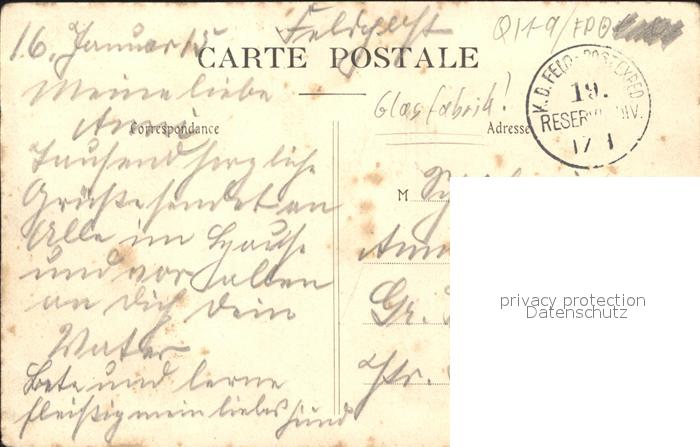 16. Januar 15
Feldpost
CARTE POSTALE
Meine liebe
Anni
Correspondance
Tausend herzliche
Grüße sendet an
Alle im Hause
und vor allen
an dich dein
Vater
Bete und lerne
fleißig mein liebes Kind
Glasfabrik!
Adresse
K.D. FELD-POSTEXPED.
19.
RESERVE DIV.
17 1
M
Gr.
Str.
privacy protection
Datenschutz